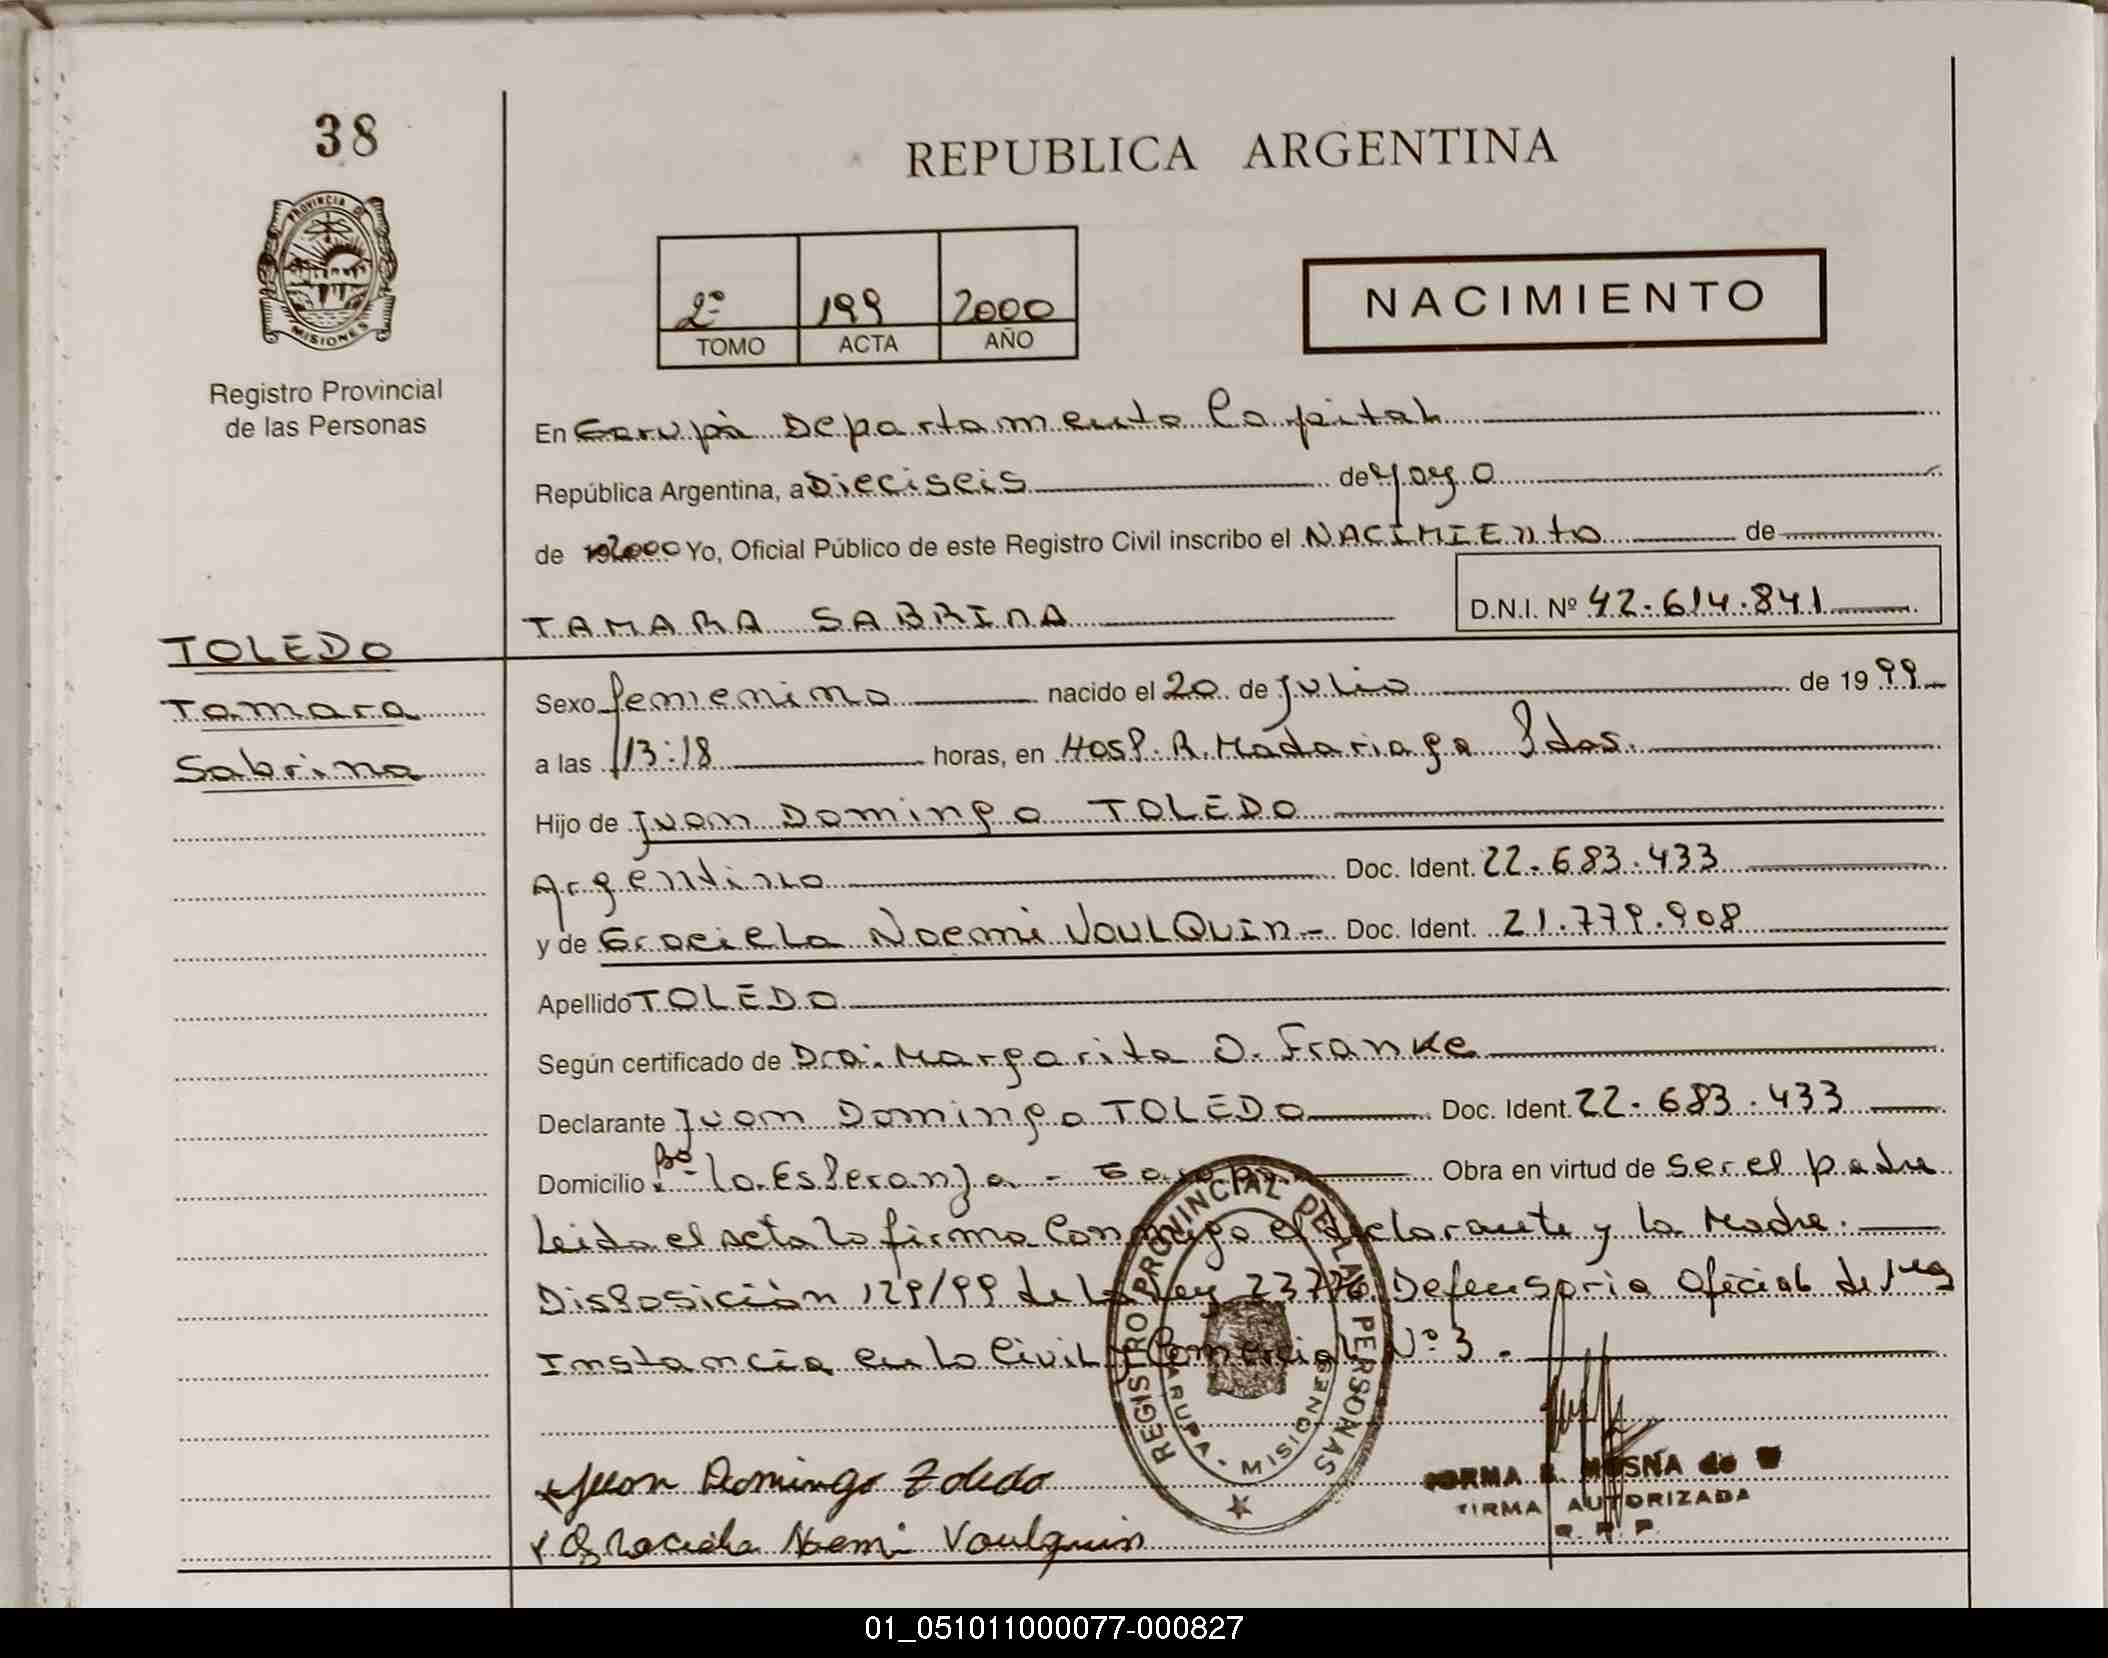 38
REPUBLICA ARGENTINA
PROVINCIA DE
MISIONES
Registro Provincial
de las Personas
2º 199 2000
TOMO ACTA AÑO
NACIMIENTO
En Garupà Departamento Capital
República Argentina, a Dieciseis de Mayo
de 2000 Yo, Oficial Público de este Registro Civil inscribo el NACIMIENTO de
TAMARA SABRINA D.N.I. Nº 42.614.841
TOLEDO
Tamara
Sabrina
Sexo femenino nacido el 20 de Julio de 1999
a las 13:18 horas, en Hosp. R. Madariaga Pdas.
Hijo de Juan Domingo TOLEDO
Argentino Doc. Ident. 22.683.433
y de Graciela Noemi VOULQUIN Doc. Ident. 21.779.908
Apellido TOLEDO
Según certificado de Dra. Margarita O. Franke
Declarante Juan Domingo TOLEDO Doc. Ident. 22.683.433
Domicilio Bº La Esperanza - Garupa Obra en virtud de ser el padre
Leida el acta la firma Conmigo el declarante y la Madre.
Disposición 129/99 de la Ley 23776 Defensoria Oficial de 1ra
Instancia en lo Civil y Comercial Nº 3.
REGISTRO PROVINCIAL DE LAS PERSONAS
GARUPA - MISIONES
Juan Domingo Toledo
NORMA B. MOSNA de W
FIRMA AUTORIZADA
R. P. P.
Graciela Noemi Voulquin
01_051011000077-000827